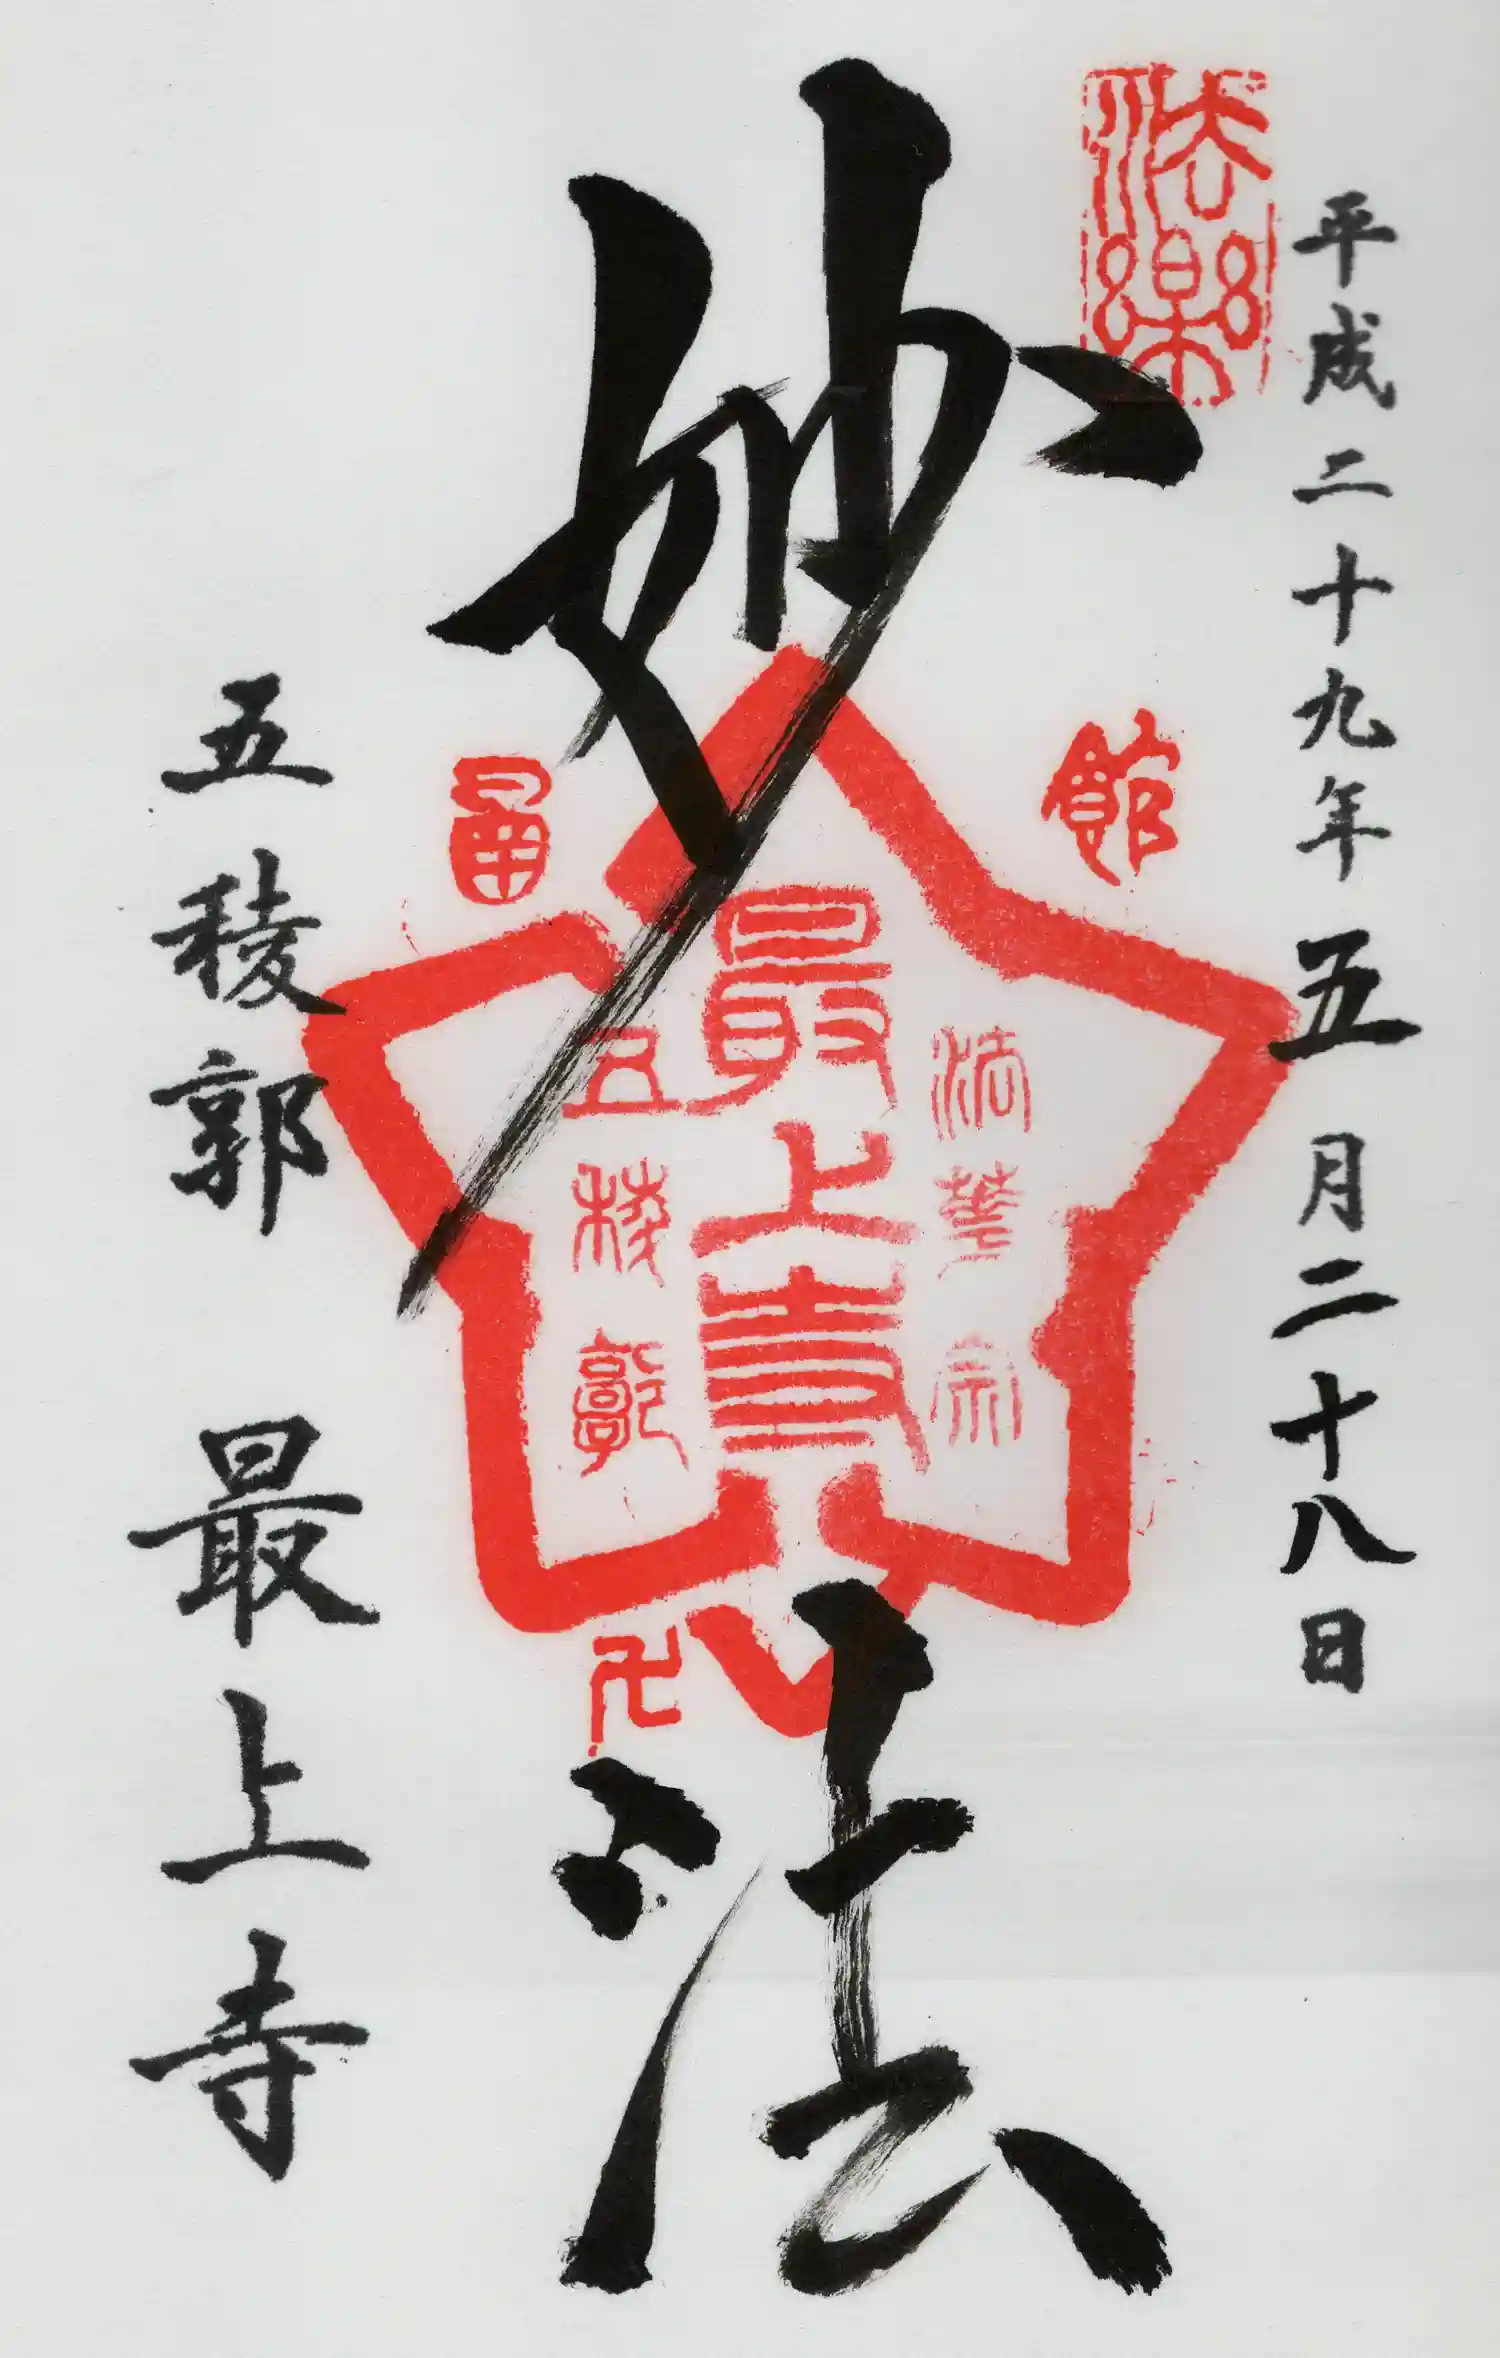 平成二十九年五月二十八日
法樂
妙法
館
法華宗
最上寺
五稜郭
五稜郭 最上寺